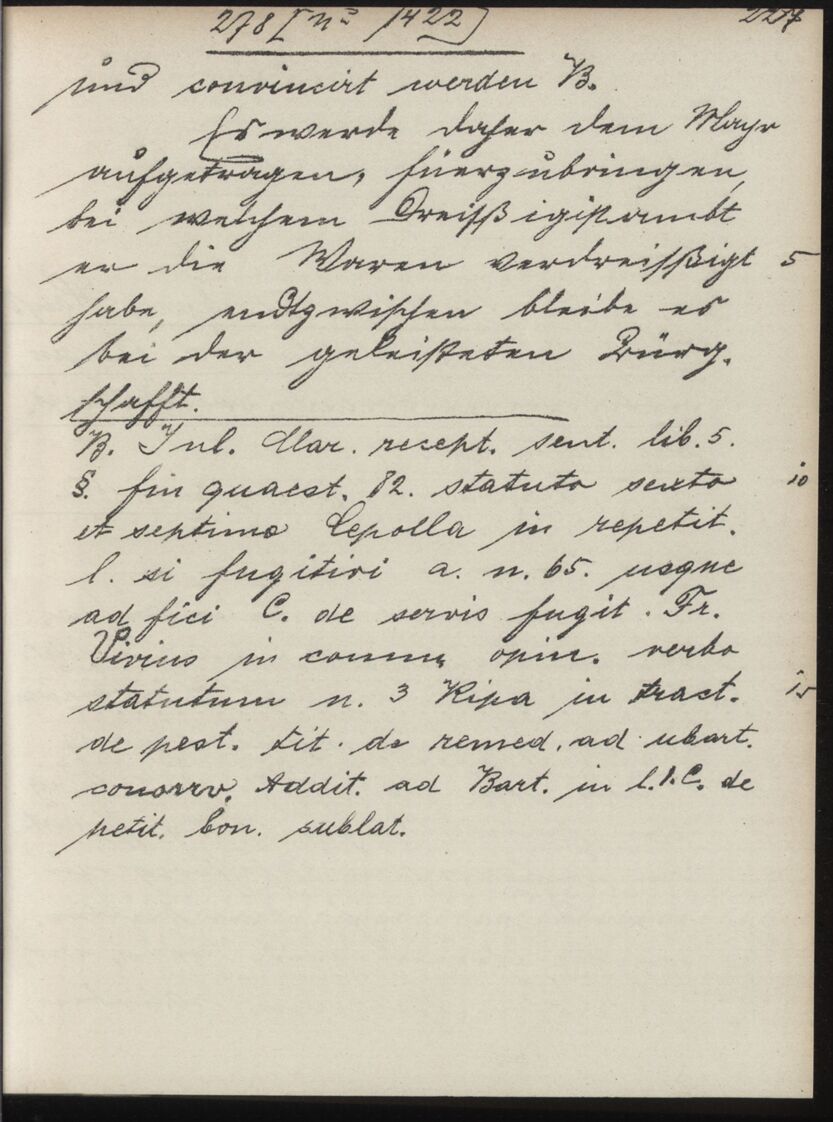 278 [nº 1422] 227
und convincirt werden B.
Es werde daher dem Mayr
aufgetragen, füerzubringen,
bei welchem Dreißigistambt
er die Waren verdreissigt 5
habe, endtzwischen bleibe es
bei der geleisteten Bürg-
schafft.
B. Jul. Clar. recept. sent. lib. 5.
§. fin quaest. 82. statuto sexto 10
et septimo Cepolla in repetit.
l. si fugitivi a. n. 65. usque
ad fici C. de servis fugit. Fr.
Vivius in comm. opin. verbo
statutum n. 3 Ripa in tract. 15
de pest. tit. de remed. ad ubert.
conserv. Addit. ad Bart. in l. 1. C. de
petit. bon. sublat.